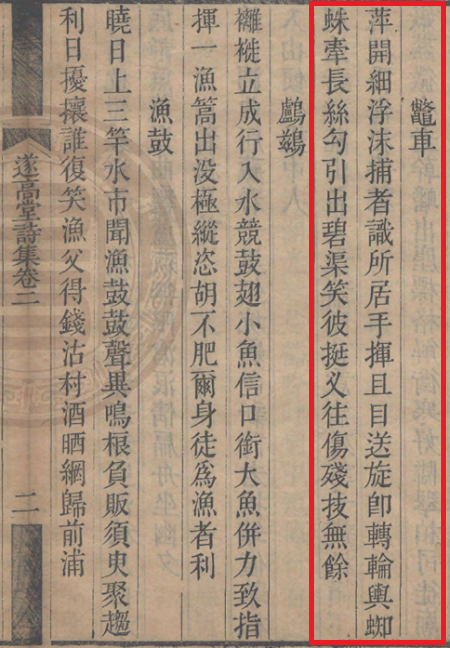 鼈車
萍開細浮沫捕者識所居手揮且目送旋卽轉輪輿蜘
蛛牽長絲勾引出碧渠笑彼挺叉往傷殘技無餘
鸕鷀
褵褷立成行入水競鼓翅小魚信口銜大魚併力致指
揮一漁篙出没極縱恣胡不肥爾身徒爲漁者利
漁鼓
曉日上三竿水市聞漁鼓鼓聲異鳴榔負販須臾聚趨
利日擾攘誰復笑漁父得錢沽村酒晒網歸前浦
遂高堂詩集卷二
二